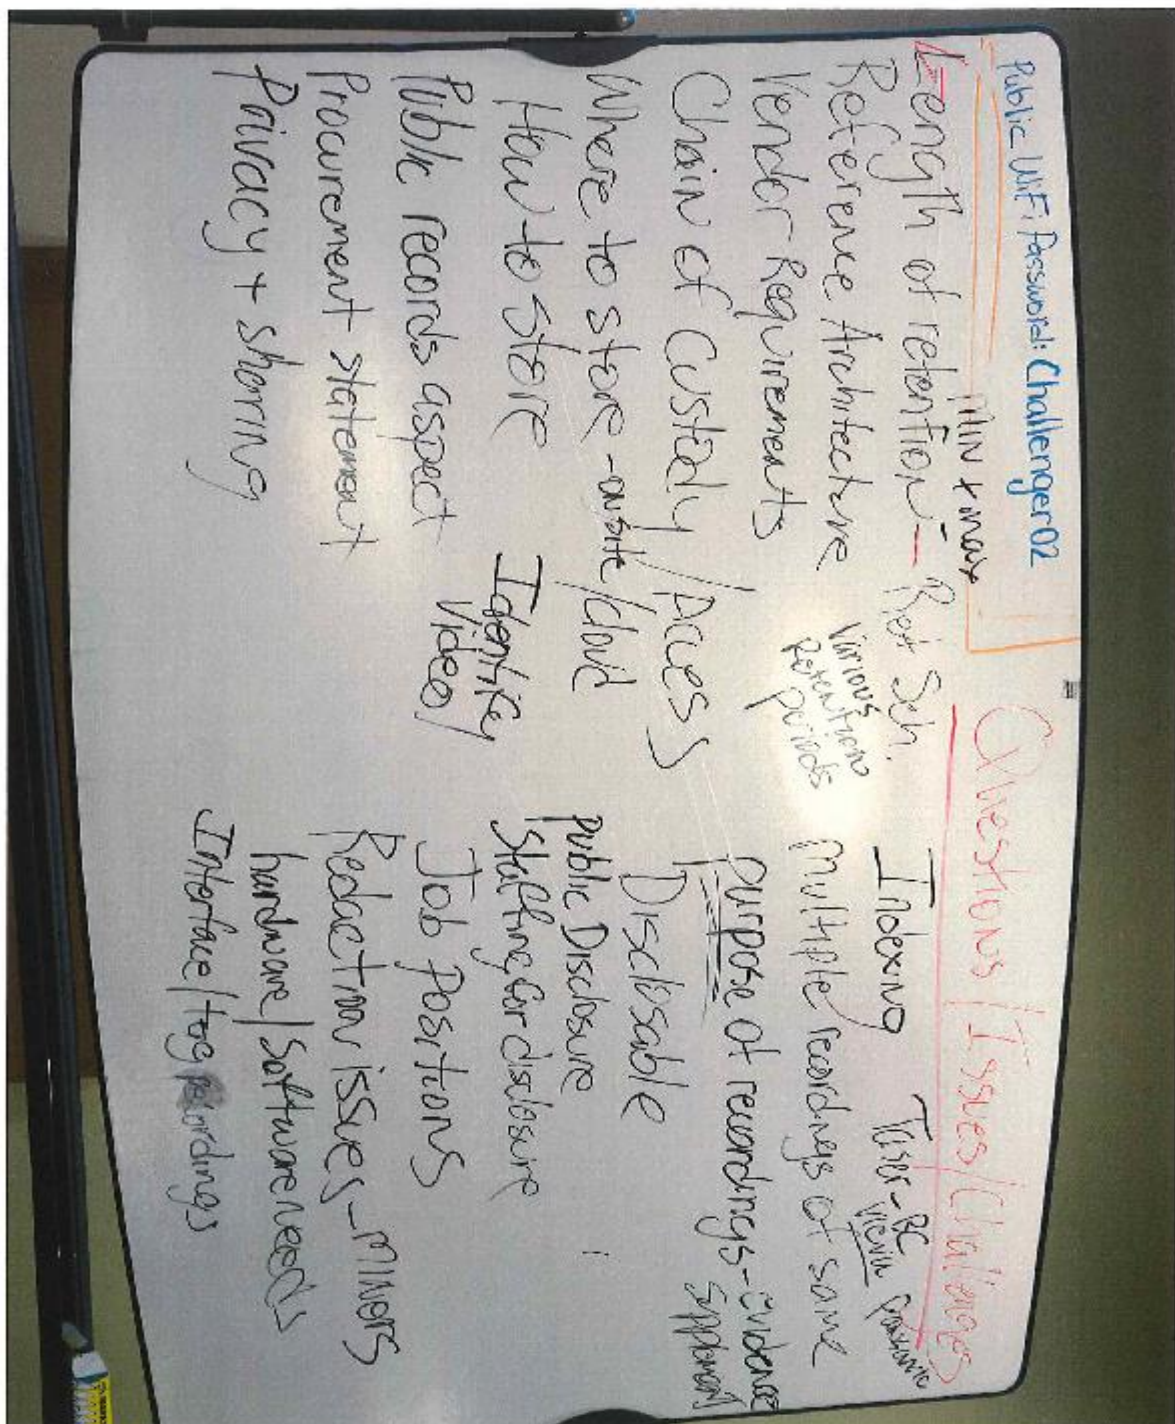 Public WiFi Password: Challenger02
Questions / Issues / Challenges
Min & max
Length of retention - Ret Sch.
Reference Architecture
Various
Retention
periods
Vendor Requirements
Chain of Custody / Access
Where to store - onsite / cloud
How to store
Identify
Video /
Public records aspect
Procurement statement
Privacy + sharing
Indexing
Taser - BC
View
multiple recordings of same
purpose of recordings - evidence
Supplement
Disclosable
public Disclosure
Staffing for disclosure
Job Positions
Redaction issues - minors
hardware / Software needs
Interface / tag recordings